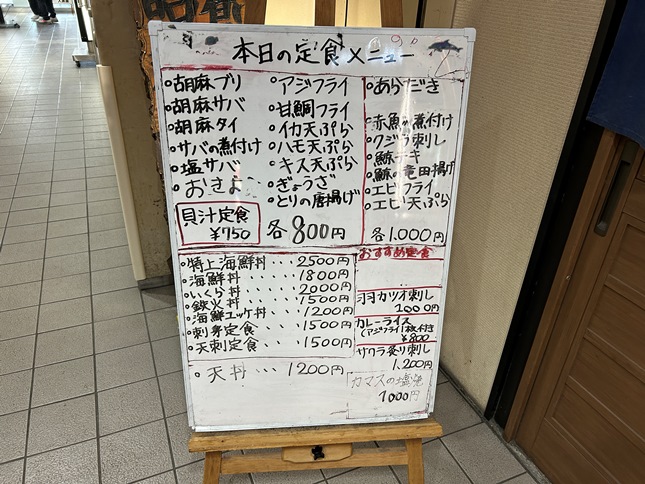 本日の定食メニュー
胡麻ブリ
胡麻サバ
胡麻タイ
サバの煮付け
塩サバ
おきよ
貝汁定食
¥750
アジフライ
甘鯛フライ
イカ天ぷら
ハモ天ぷら
キス天ぷら
ぎょうざ
とりの唐揚げ
各800円
あらだき
赤魚の煮付け
クジラ刺し
鯨テキ
鯨の竜田揚げ
エビフライ
エビ天ぷら
各1,000円
特上海鮮丼・・・2500円
海鮮丼・・・・1800円
いくら丼・・・2000円
鉄火丼・・・・1500円
海鮮ユッケ丼・・・1200円
刺身定食・・・1500円
天刺定食・・・1500円
天丼・・・1200円
おすすめ定食
カツオ刺し
1000円
カレーライス
(アジフライ1枚付き
¥800
サワラ炙り刺し
1,200円
カマスの塩焼
1000円